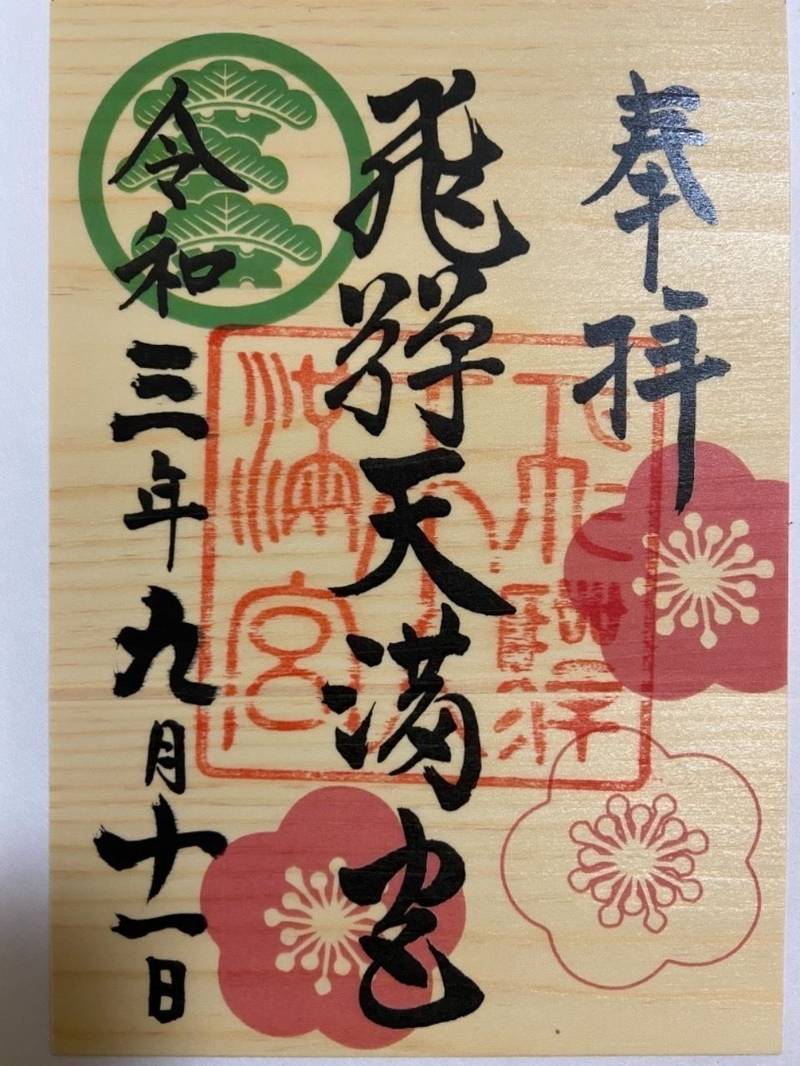 奉拝
飛騨天満宮
令和三年九月十一日
飛騨天満宮